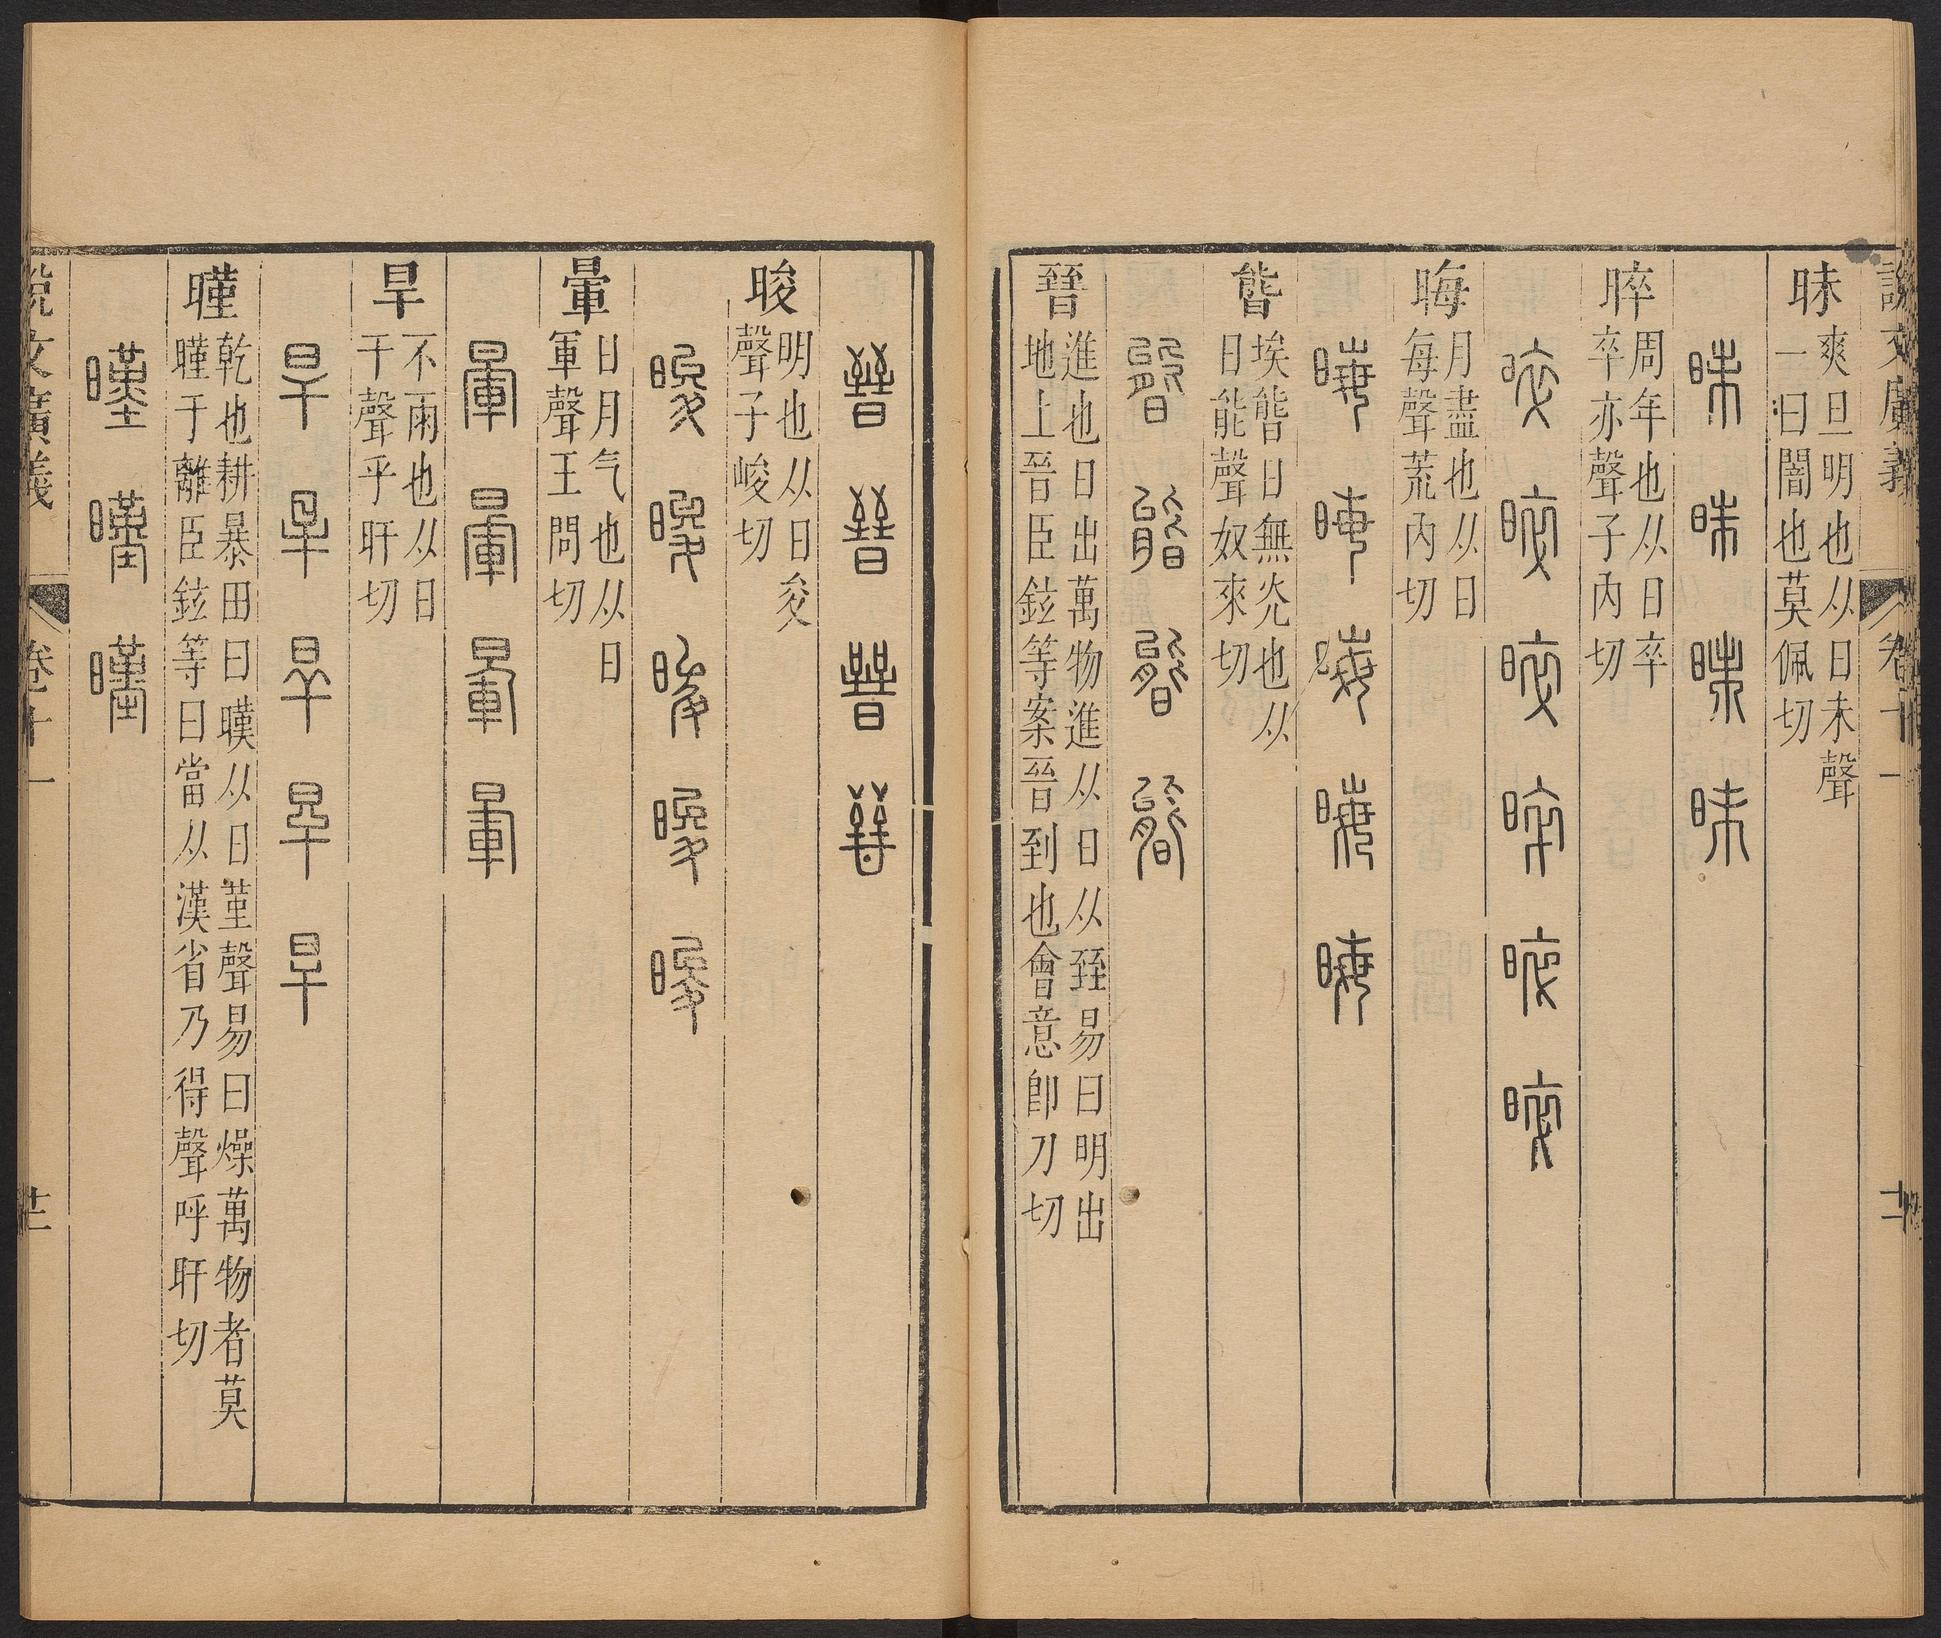 說文廣義
卷十一
昧
爽旦明也从日未聲
一曰闇也莫佩切
昧 昧 昧 昧
晬
周年也从日卒
卒亦聲子內切
晦
月盡也从日
每聲荒內切
晦 晦 晦 晦 晦
㬮
埃㬮日無光也从
日能聲奴來切
㬮 㬮 㬮 㬮
晉
進也日出萬物進从日从臸易曰明出
地上晉臣鉉等案晉到也會意卽刀切
晉 晉 晉 晉
晙
明也从日夋
聲子峻切
晙 晙 晙 晙 晙
暈
日月气也从日
軍聲王問切
暈 暈 暈 暈
旱
不雨也从日
干聲乎旰切
旱 旱 旱 旱 旱
暵
乾也耕暴田曰暵从日堇聲易曰燥萬物者莫
暵于離臣鉉等曰當从漢省乃得聲呼旰切
暵 暵 暵
說文廣義
卷十一